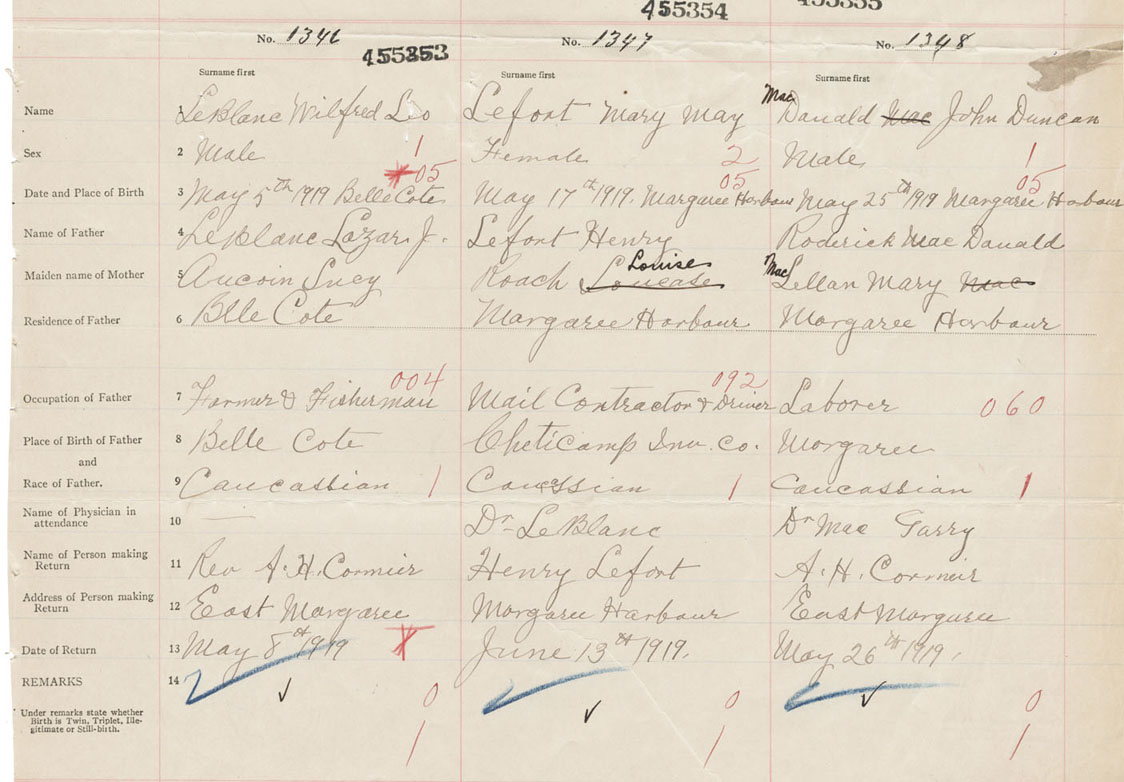 455354
455355
No. 1346 455353 No. 1347 No. 1348
Surname first Surname first Surname first
Name 1 LeBlanc Wilfred Leo Lefort Mary May MacDanald Mac John Duncan
Sex 2 Male 1 Female 2 Male 1
05 05 05
Date and Place of Birth 3 May 5th 1919 Belle Cote May 17th 1919. Margaree Harbour May 25th 1919 Margaree Harbour
Name of Father 4 LeBlanc Lazar. J. Lefort Henry Roderick Mac Danald
Maiden name of Mother 5 Aucoin Lucy Roach Louise MacLellan Mary Mac
Residence of Father 6 Blle Cote Margaree Harbour Margaree Harbour
004 092
Occupation of Father 7 Farmer & Fisherman Mail Contractor & Driver Laborer 060
Place of Birth of Father 8 Belle Cote Cheticamp Inv. Co. Margaree
and
Race of Father. 9 Caucassian 1 1 Caucassian 1
Name of Physician in attendance 10 — Dr LeBlanc Dr Mac Garry
Name of Person making Return 11 Rev A. H. Cormier Henry Lefort A. H. Cormeir
Address of Person making Return 12 East Margaree Margaree Harbour East Margaree
Date of Return 13 May 8th 1919 X June 13th 1919. May 26th 1919.
REMARKS 14 ✓ 0 ✓ 0 ✓ 0
Under remarks state whether
Birth is Twin, Triplet, Ille-
gitimate or Still-birth. 1 1 1